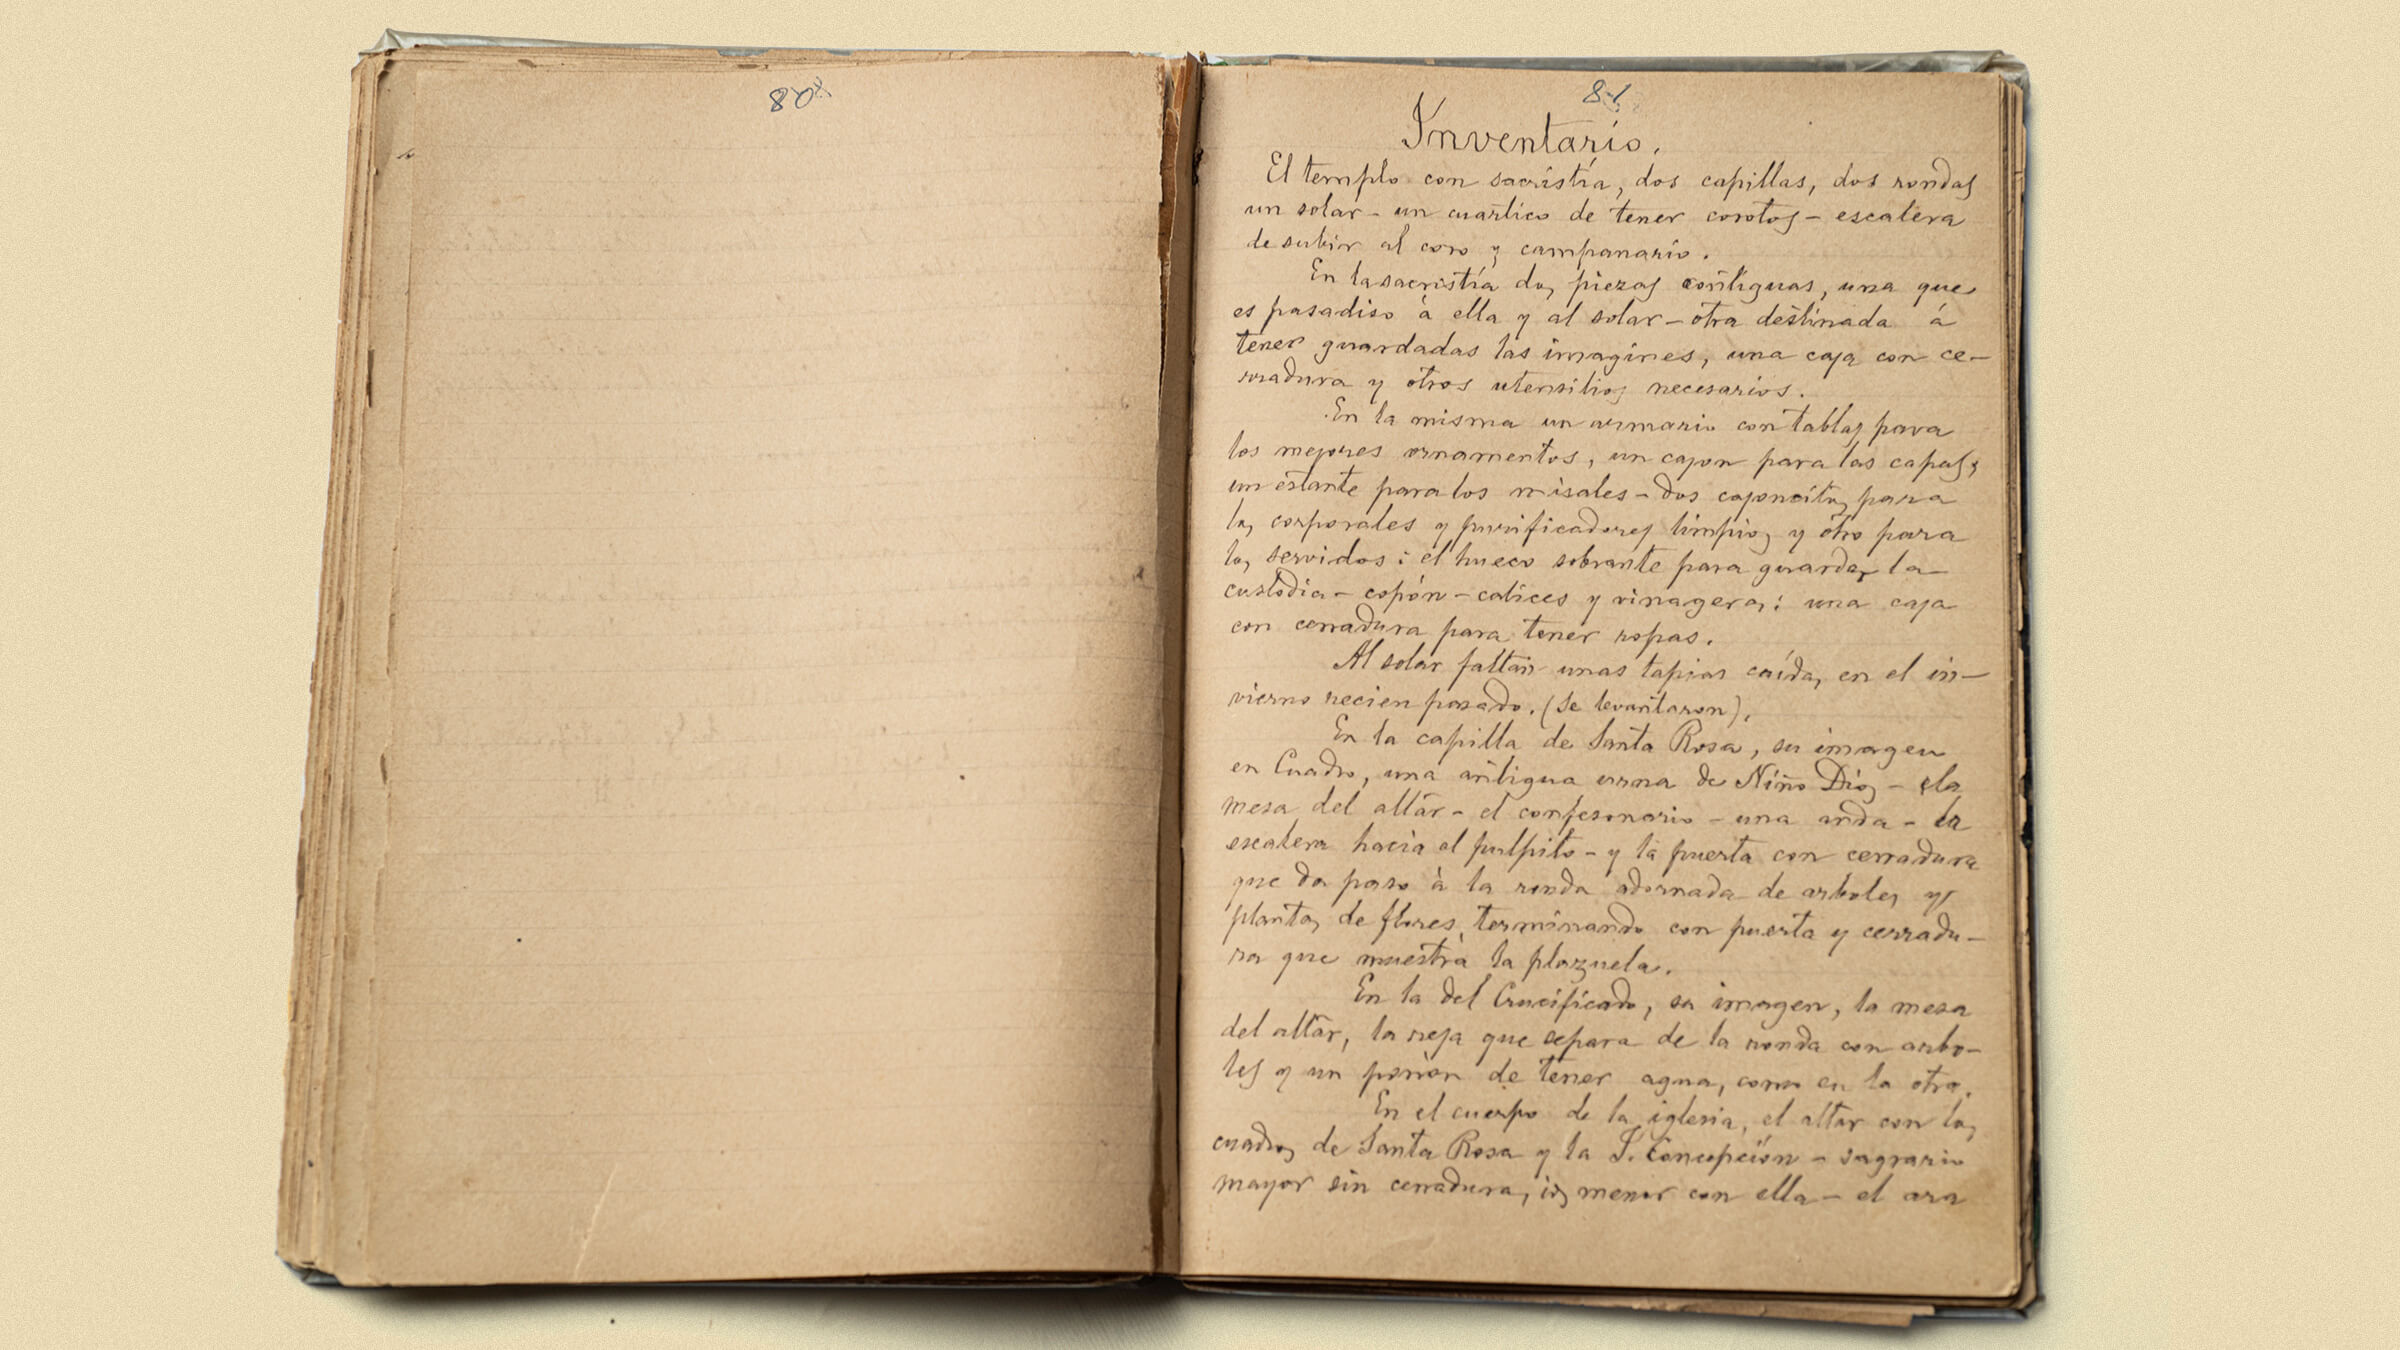 80
81
Inventario.
El templo con sacristía, dos capillas, dos rondas
un solar - un cuartico de tener corotos - escalera
de subir al coro y campanario.
En la sacristía dos piezas contiguas, una que
es pasadiso á ella y al solar - otra destinada á
tener guardadas las imagines, una caja con ce-
rradura y otros utensilios necesarios.
En la misma un armario con tablas para
los mejores ornamentos, un cajon para las capas,
un estante para los misales - dos cajoncitos para
los corporales y purificadores limpios y otro para
los servidos: el hueco sobrante para guardar la
custodia - copón - calices y vinageras: una caja
con cerradura para tener ropas.
Al solar faltan unas tapias caídas en el in-
vierno recien pasado. (Se levantaron).
En la capilla de Santa Rosa, su imagen
en Cuadro, una antigua urna de Niño Dios - la
mesa del altar - el confesonario - una anda - la
escalera hacia el pulpito - y la puerta con cerradura
que da paso à la ronda adornada de arboles y
plantas de flores, terminando con puerta y cerradu-
ra que muestra la plazuela.
En la del Crucificado, su imagen, la mesa
del altar, la reja que separa de la ronda con arbo-
les y un de tener agua, como en la otra.
En el cuerpo de la iglesia, el altar con los
cuadros de Santa Rosa y la I. Concepción - sagrario
mayor sin cerradura, menor con ella - el ara